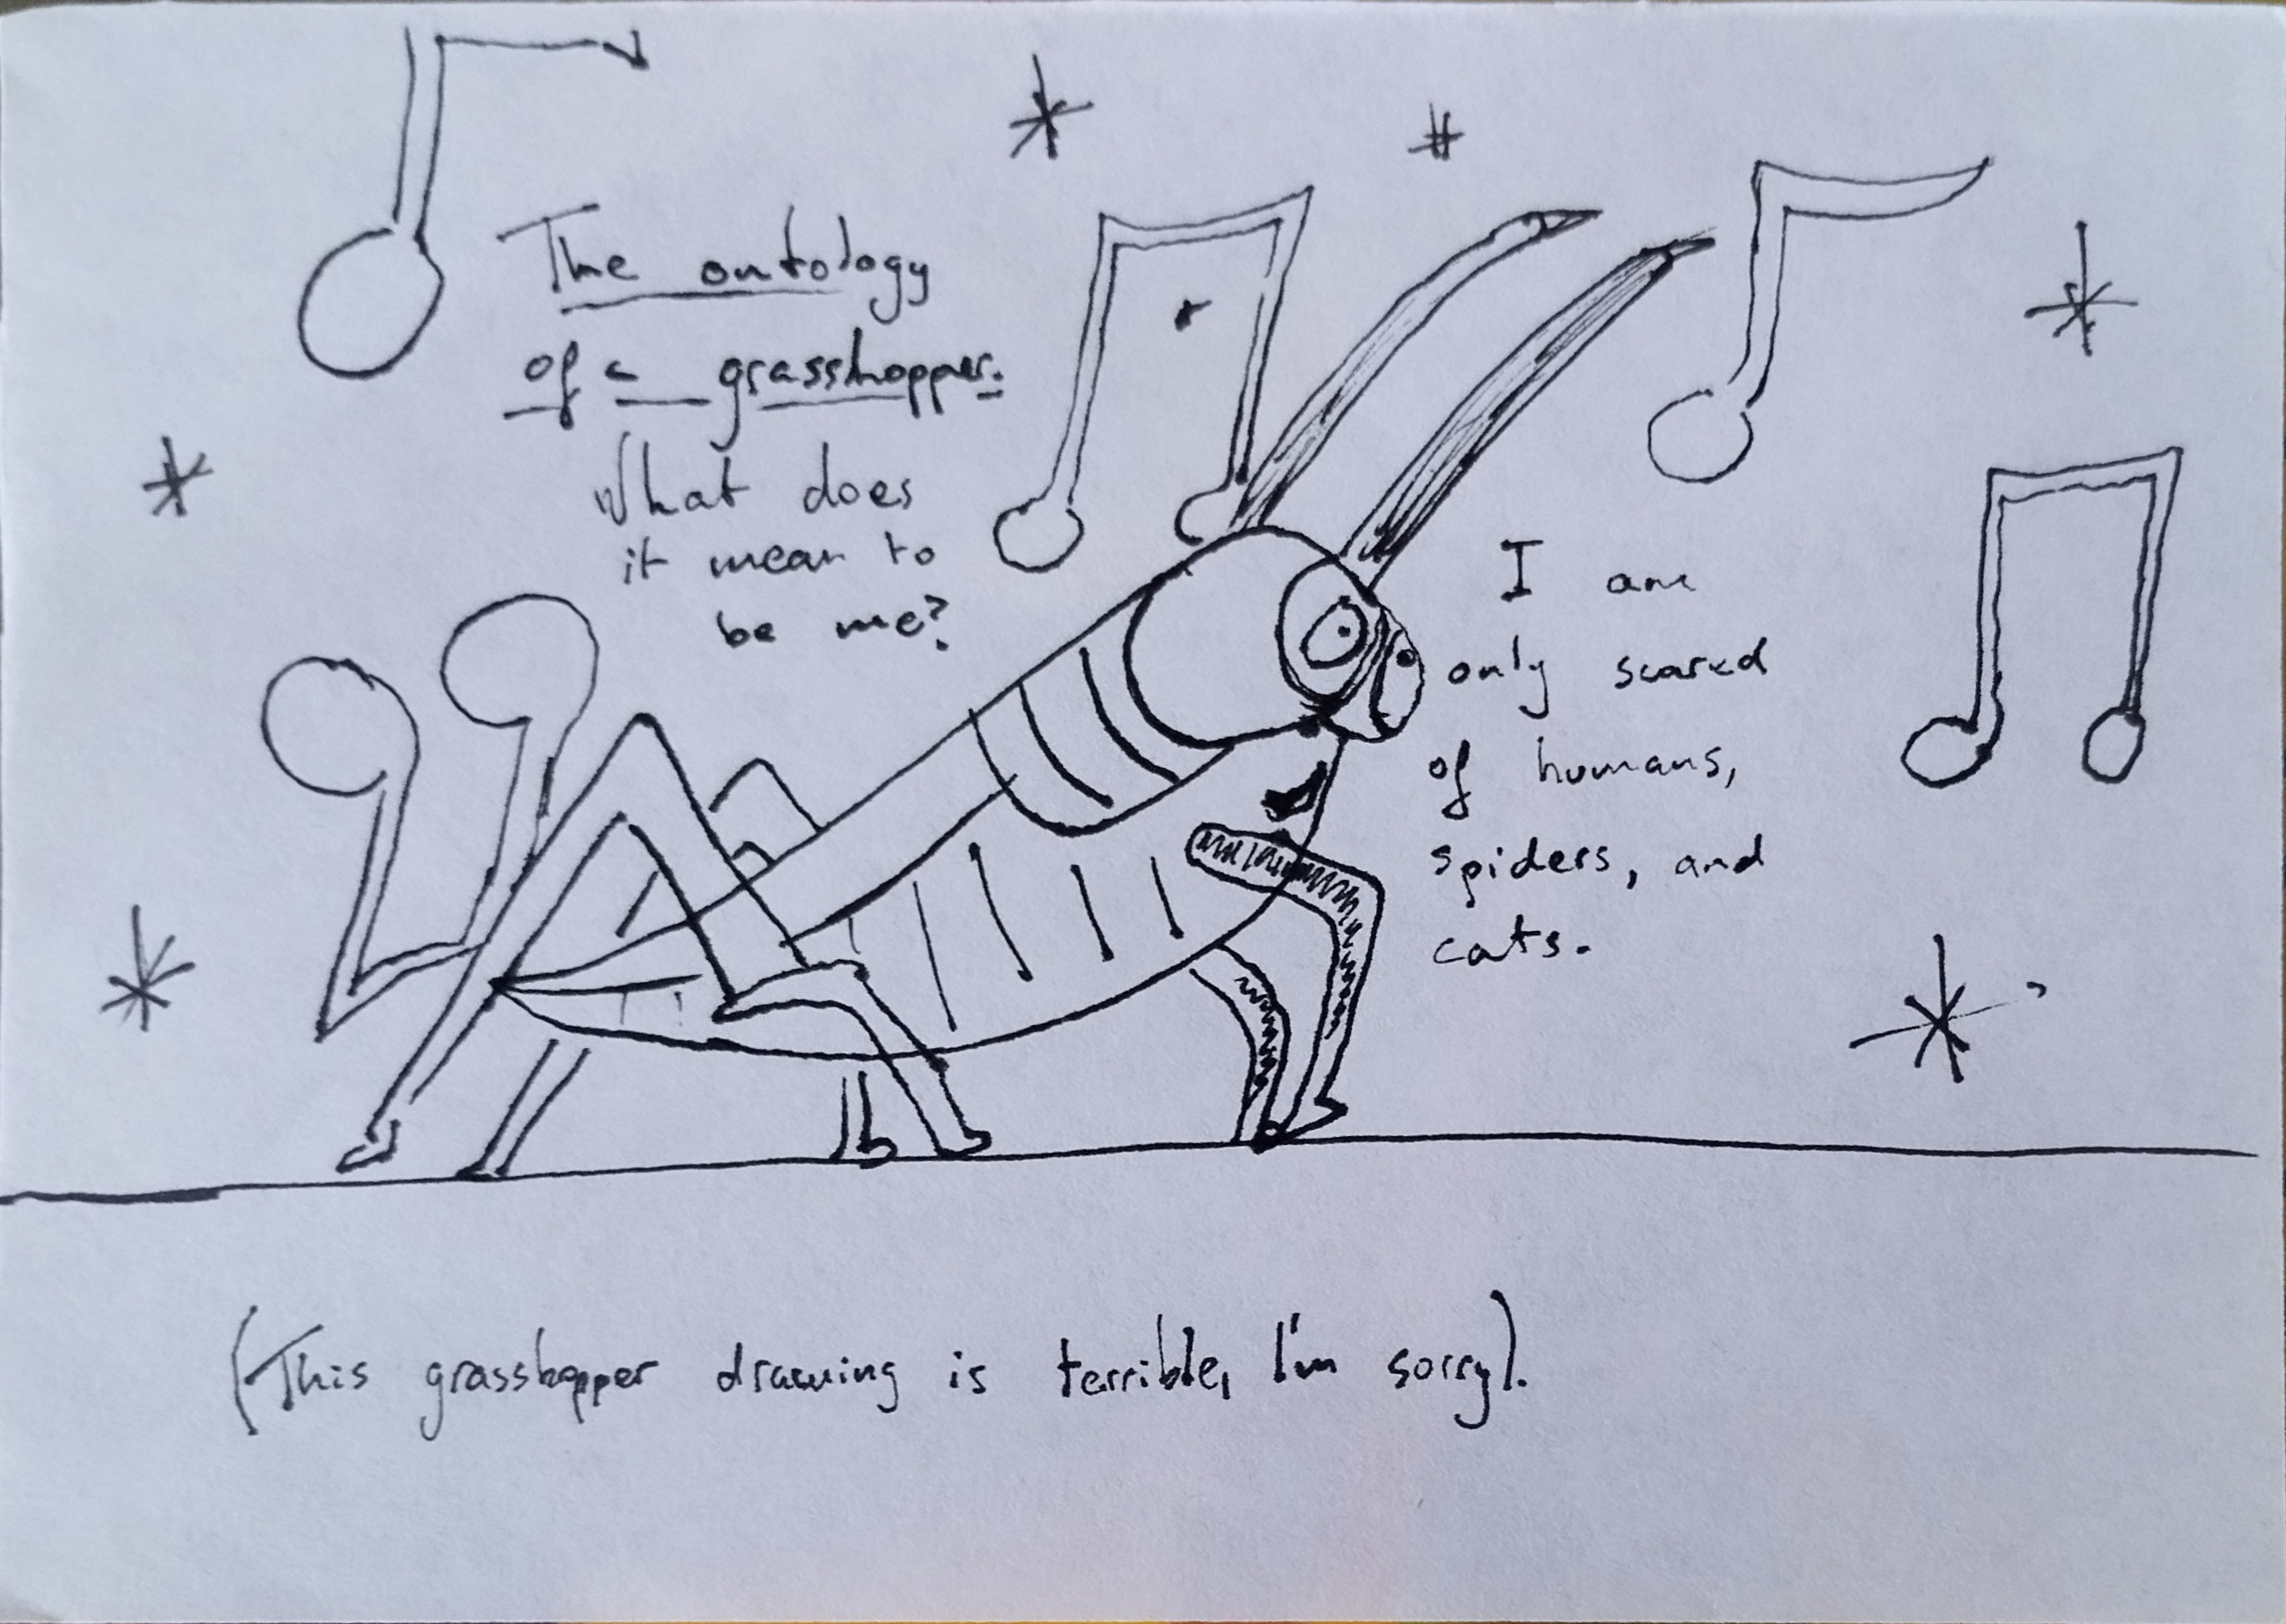 The ontology
of a grasshopper.
What does
it mean to
be me?
I am
only scared
of humans,
spiders, and
cats.
(This grasshopper drawing is terrible, I'm sorry).